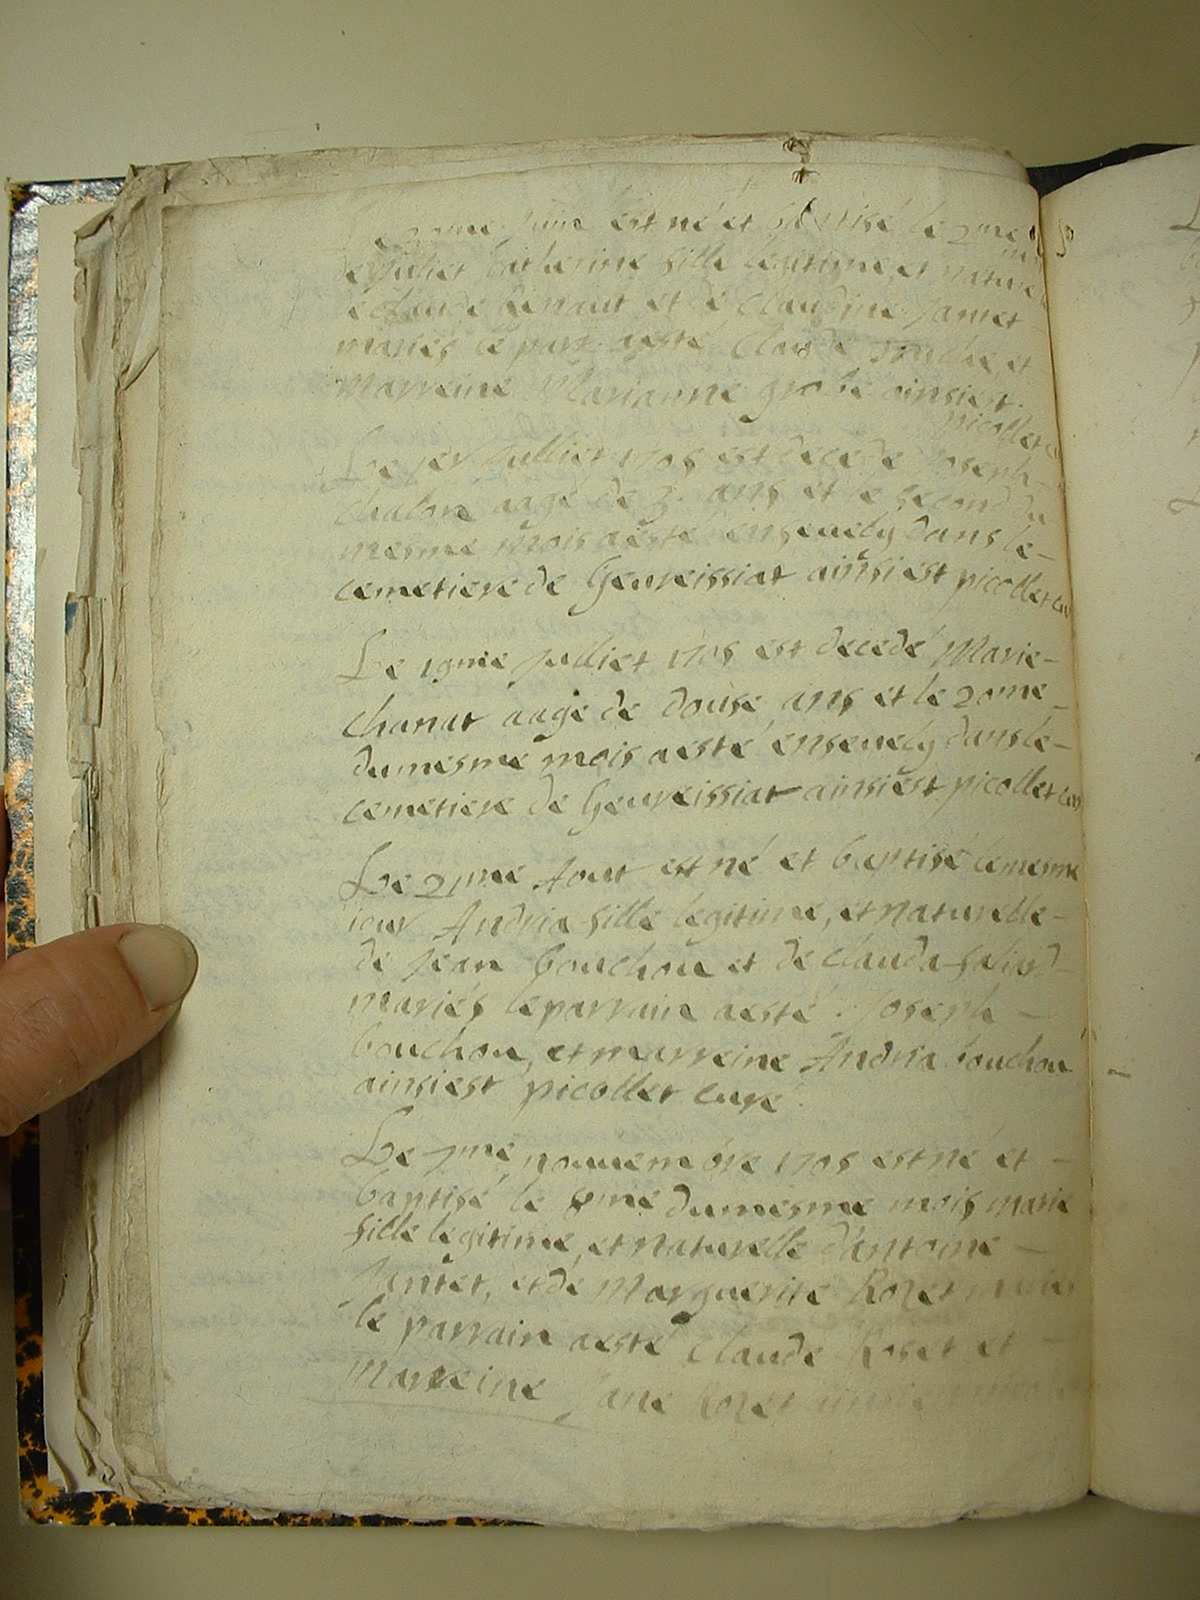 est né et baptisé le 2me
de Juliet Catherine fille legitime, et naturel
de claude et de Claudine Jantet
mariés le par. aesté Claude et
Marreine Marianne ainsi est
picollet
Le 1er Julliet 1705 est decede Joseph
aagé de 3. ans et le second du
mesme mois aesté ensevely dans le
cemetiere de Geureissiat ainsi est picollet cu
Le 19me Julliet 1705 est decedé Marie
chanut aage de douse ans et le 20me
du mesme mois aesté ensevely dans le
cemetiere de Geureissiat ainsi est picollet cur
Le 21me Aout est né et baptisé le mesme
iour Andria fille legitime, et naturelle
de Jean bouchou et de clauda
mariés le parrain aesté Joseph
bouchou, et marreine Andria bouchou
ainsi est picollet cure
Le 7me novembre 1705 est né et
baptisé le 8me du mesme mois marie
fille legitime, et naturelle d'antoine
Jantet, et de Marguerite Rozet
le parrain aesté Claude Roset et
Marreine Jane Rozet